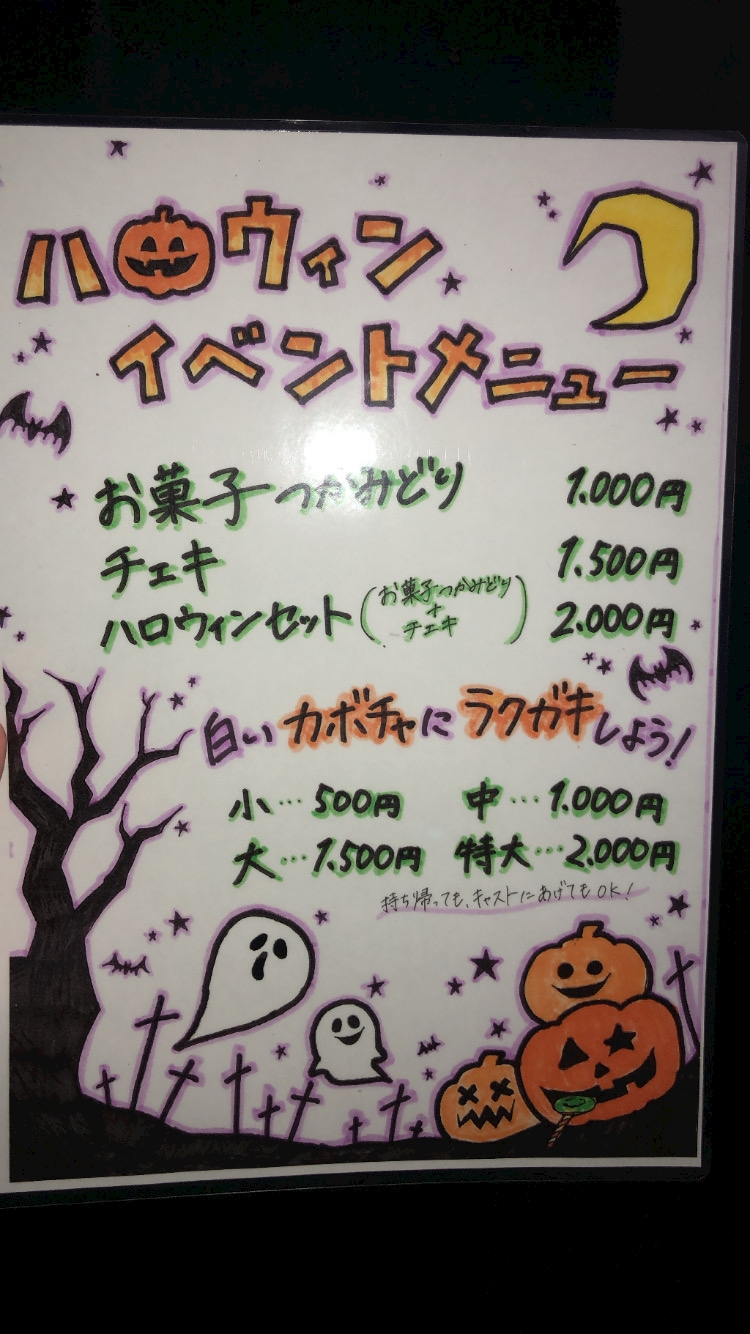 ハロウィン
イベントメニュー
お菓子つかみどり 1.000円
チェキ 1.500円
ハロウィンセット（お菓子つかみどり＋チェキ） 2.000円
白いカボチャにラクガキしよう！
小…500円 中…1.000円
大…1.500円 特大…2.000円
持ち帰っても、キャストにあげてもOK！